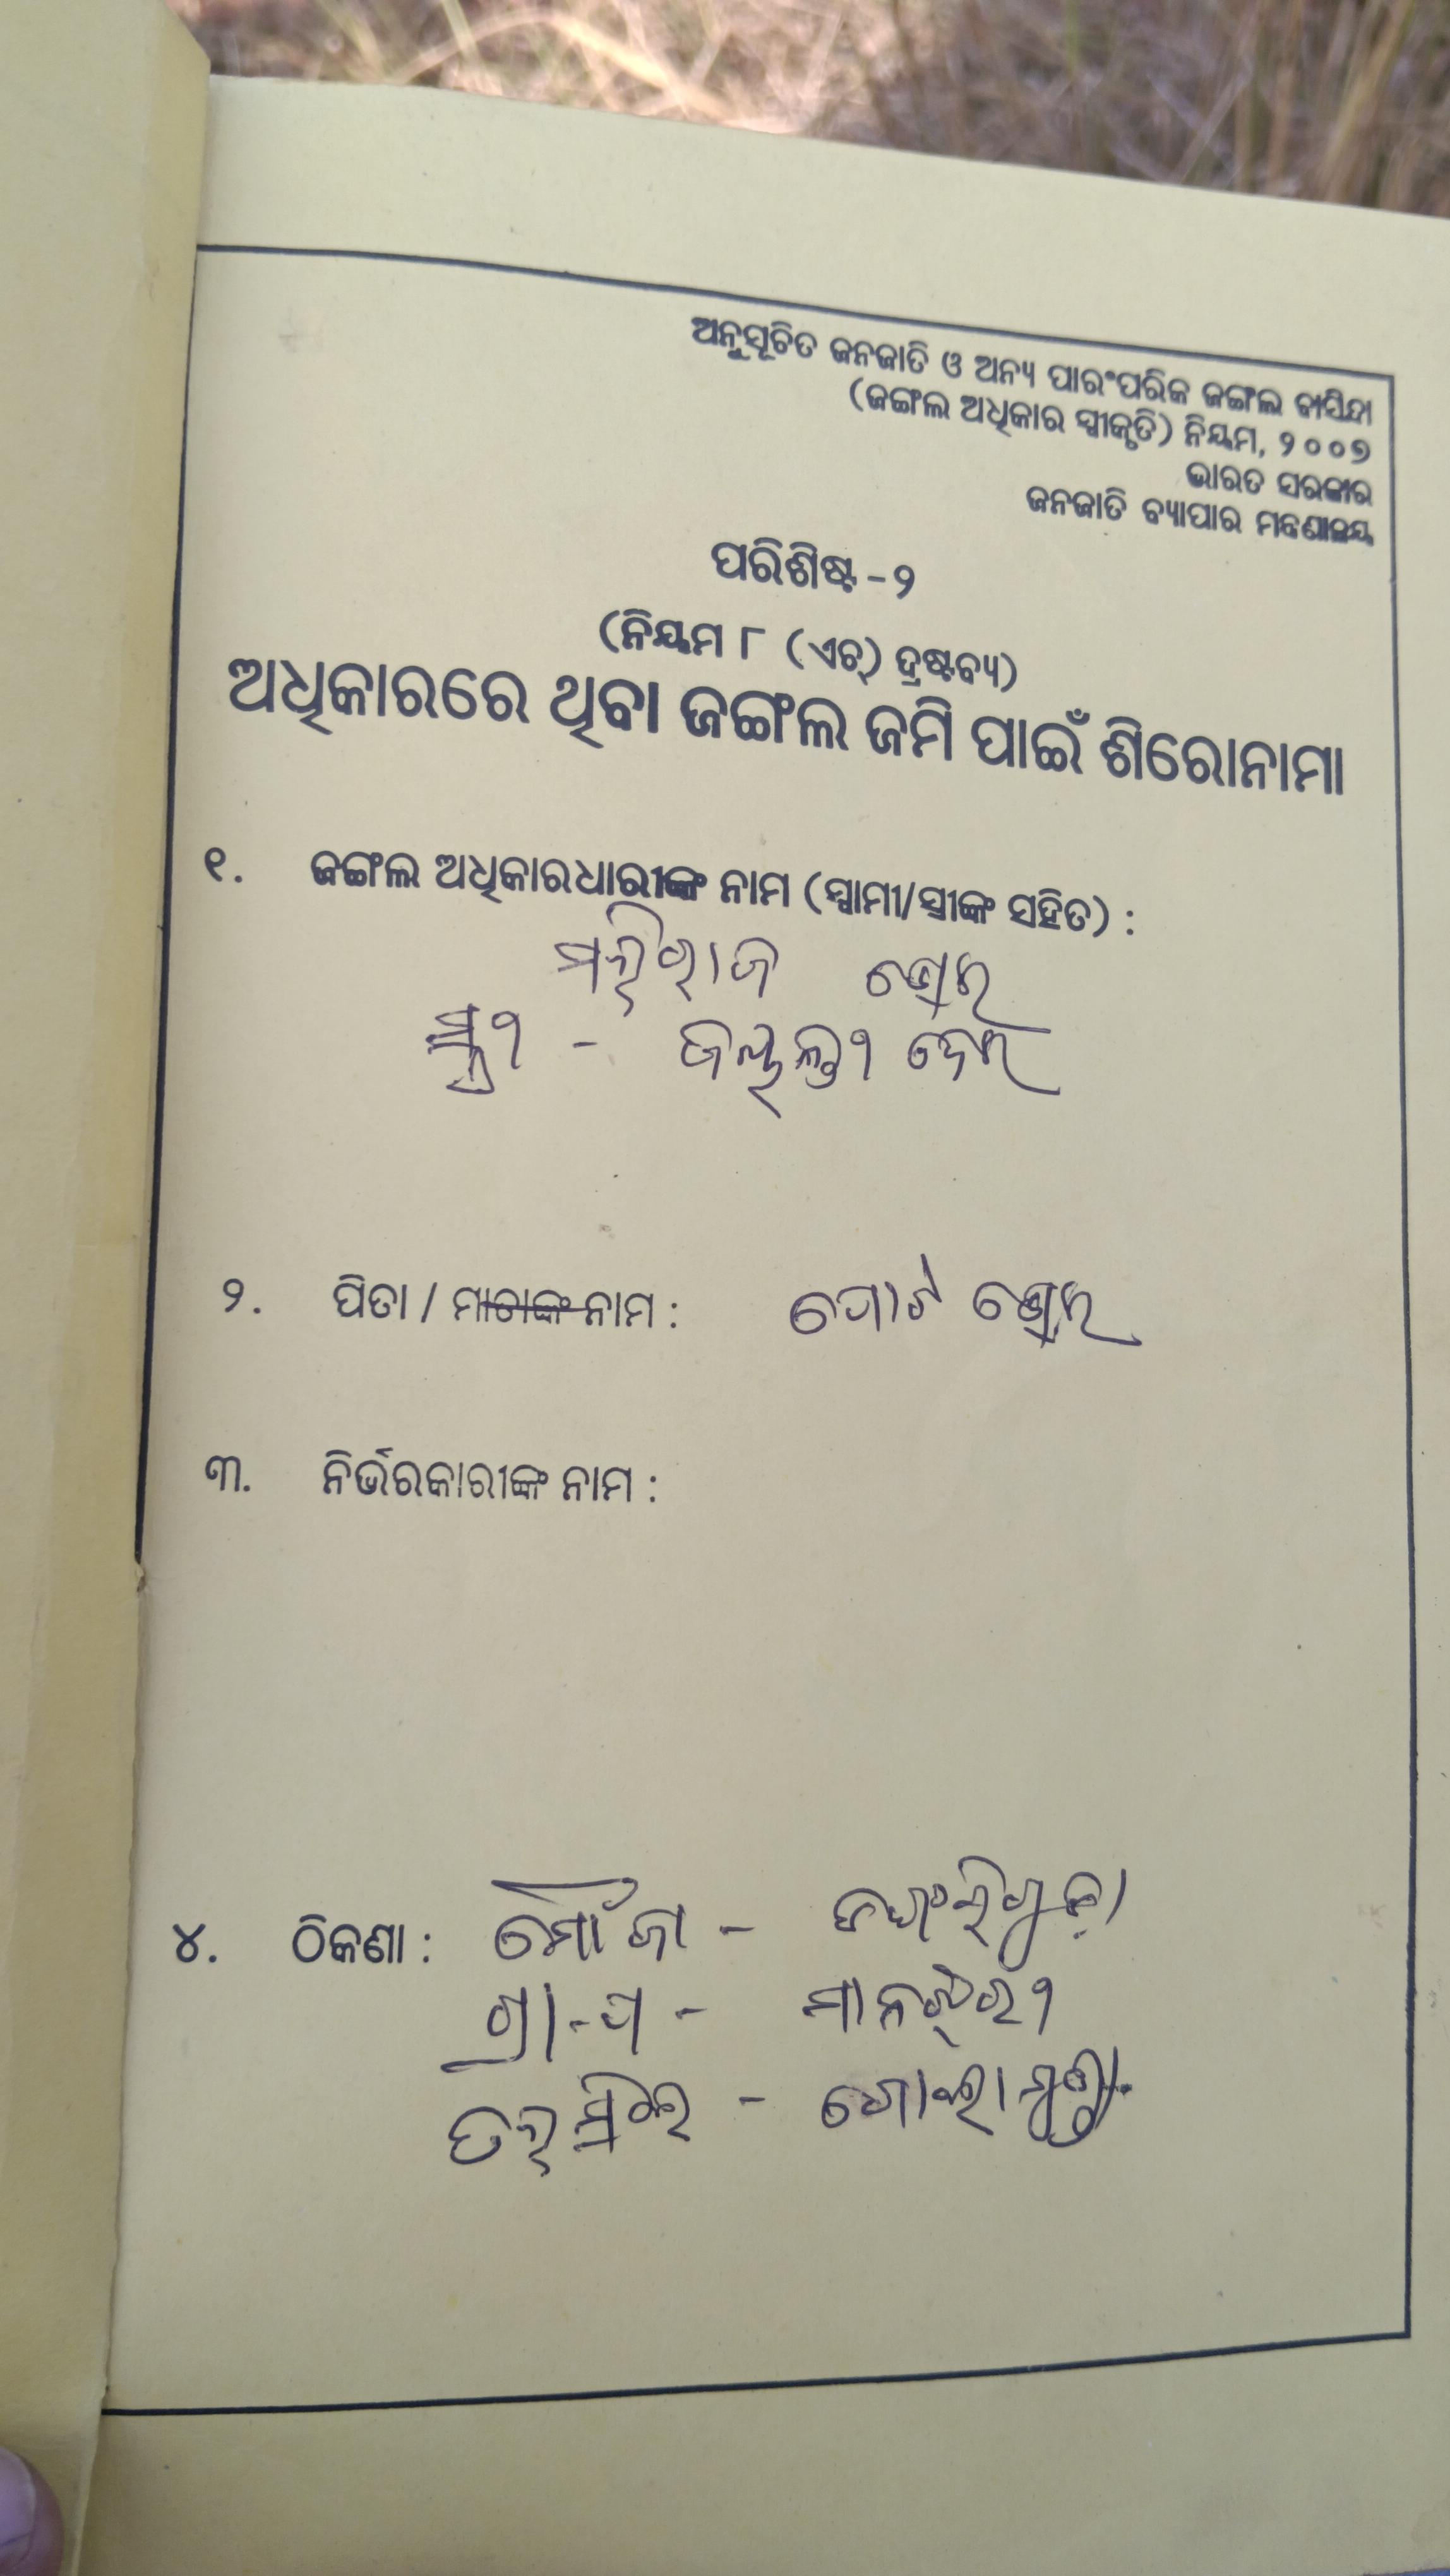 ଅନୁସୂଚିତ ଜନଜାତି ଓ ଅନ୍ୟ ପାରଂପରିକ ଜଙ୍ଗଲ ବାସିନ୍ଦା
(ଜଙ୍ଗଲ ଅଧିକାର ସ୍ୱୀକୃତି) ନିୟମ, ୨୦୦୭
ଭାରତ ସରକାର
ଜନଜାତି ବ୍ୟାପାର ମନ୍ତ୍ରଣାଳୟ
ପରିଶିଷ୍ଟ - ୨
(ନିୟମ ୮ (ଏଚ୍) ଦ୍ରଷ୍ଟବ୍ୟ)
ଅଧିକାରରେ ଥିବା ଜଙ୍ଗଲ ଜମି ପାଇଁ ଶିରୋନାମା
୧. ଜଙ୍ଗଲ ଅଧିକାରଧାରୀଙ୍କ ନାମ (ସ୍ୱାମୀ/ସ୍ତ୍ରୀଙ୍କ ସହିତ) :
ସ୍ତ୍ରୀ -
୨. ପିତା / ମାତାଙ୍କ ନାମ :
୩. ନିର୍ଭରକାରୀଙ୍କ ନାମ :
୪. ଠିକଣା : ମୌଜା -
ଗ୍ରା-ପ -
ତହସିଲ - ଗୋଲାମୁଣ୍ଡା.